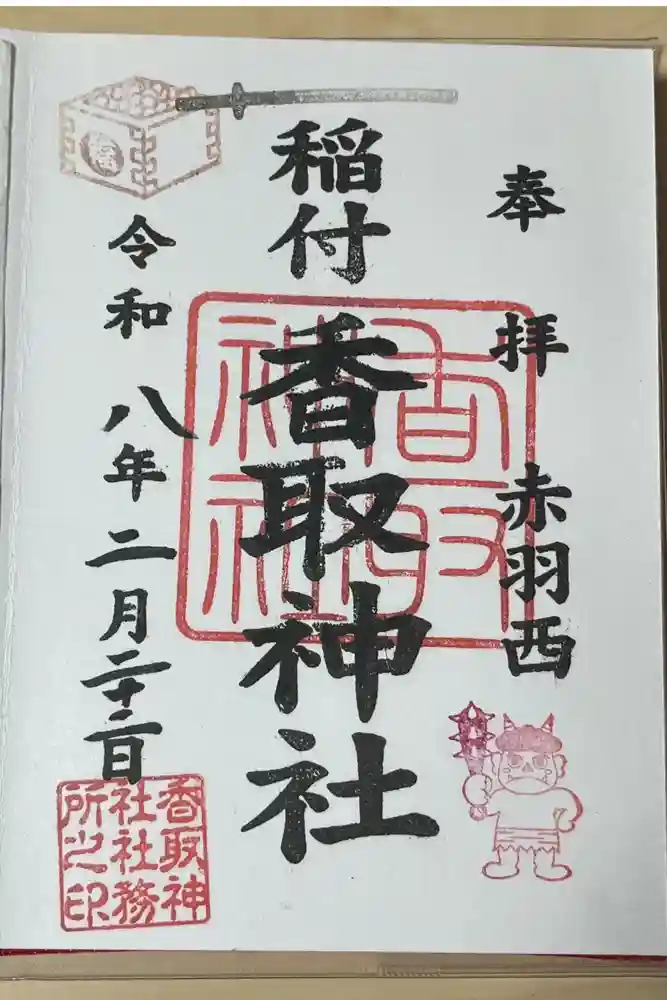 奉拝 赤羽西
稲付
香取神社
令和八年二月二十二日
香取
神社
香取神
社社務
所之印